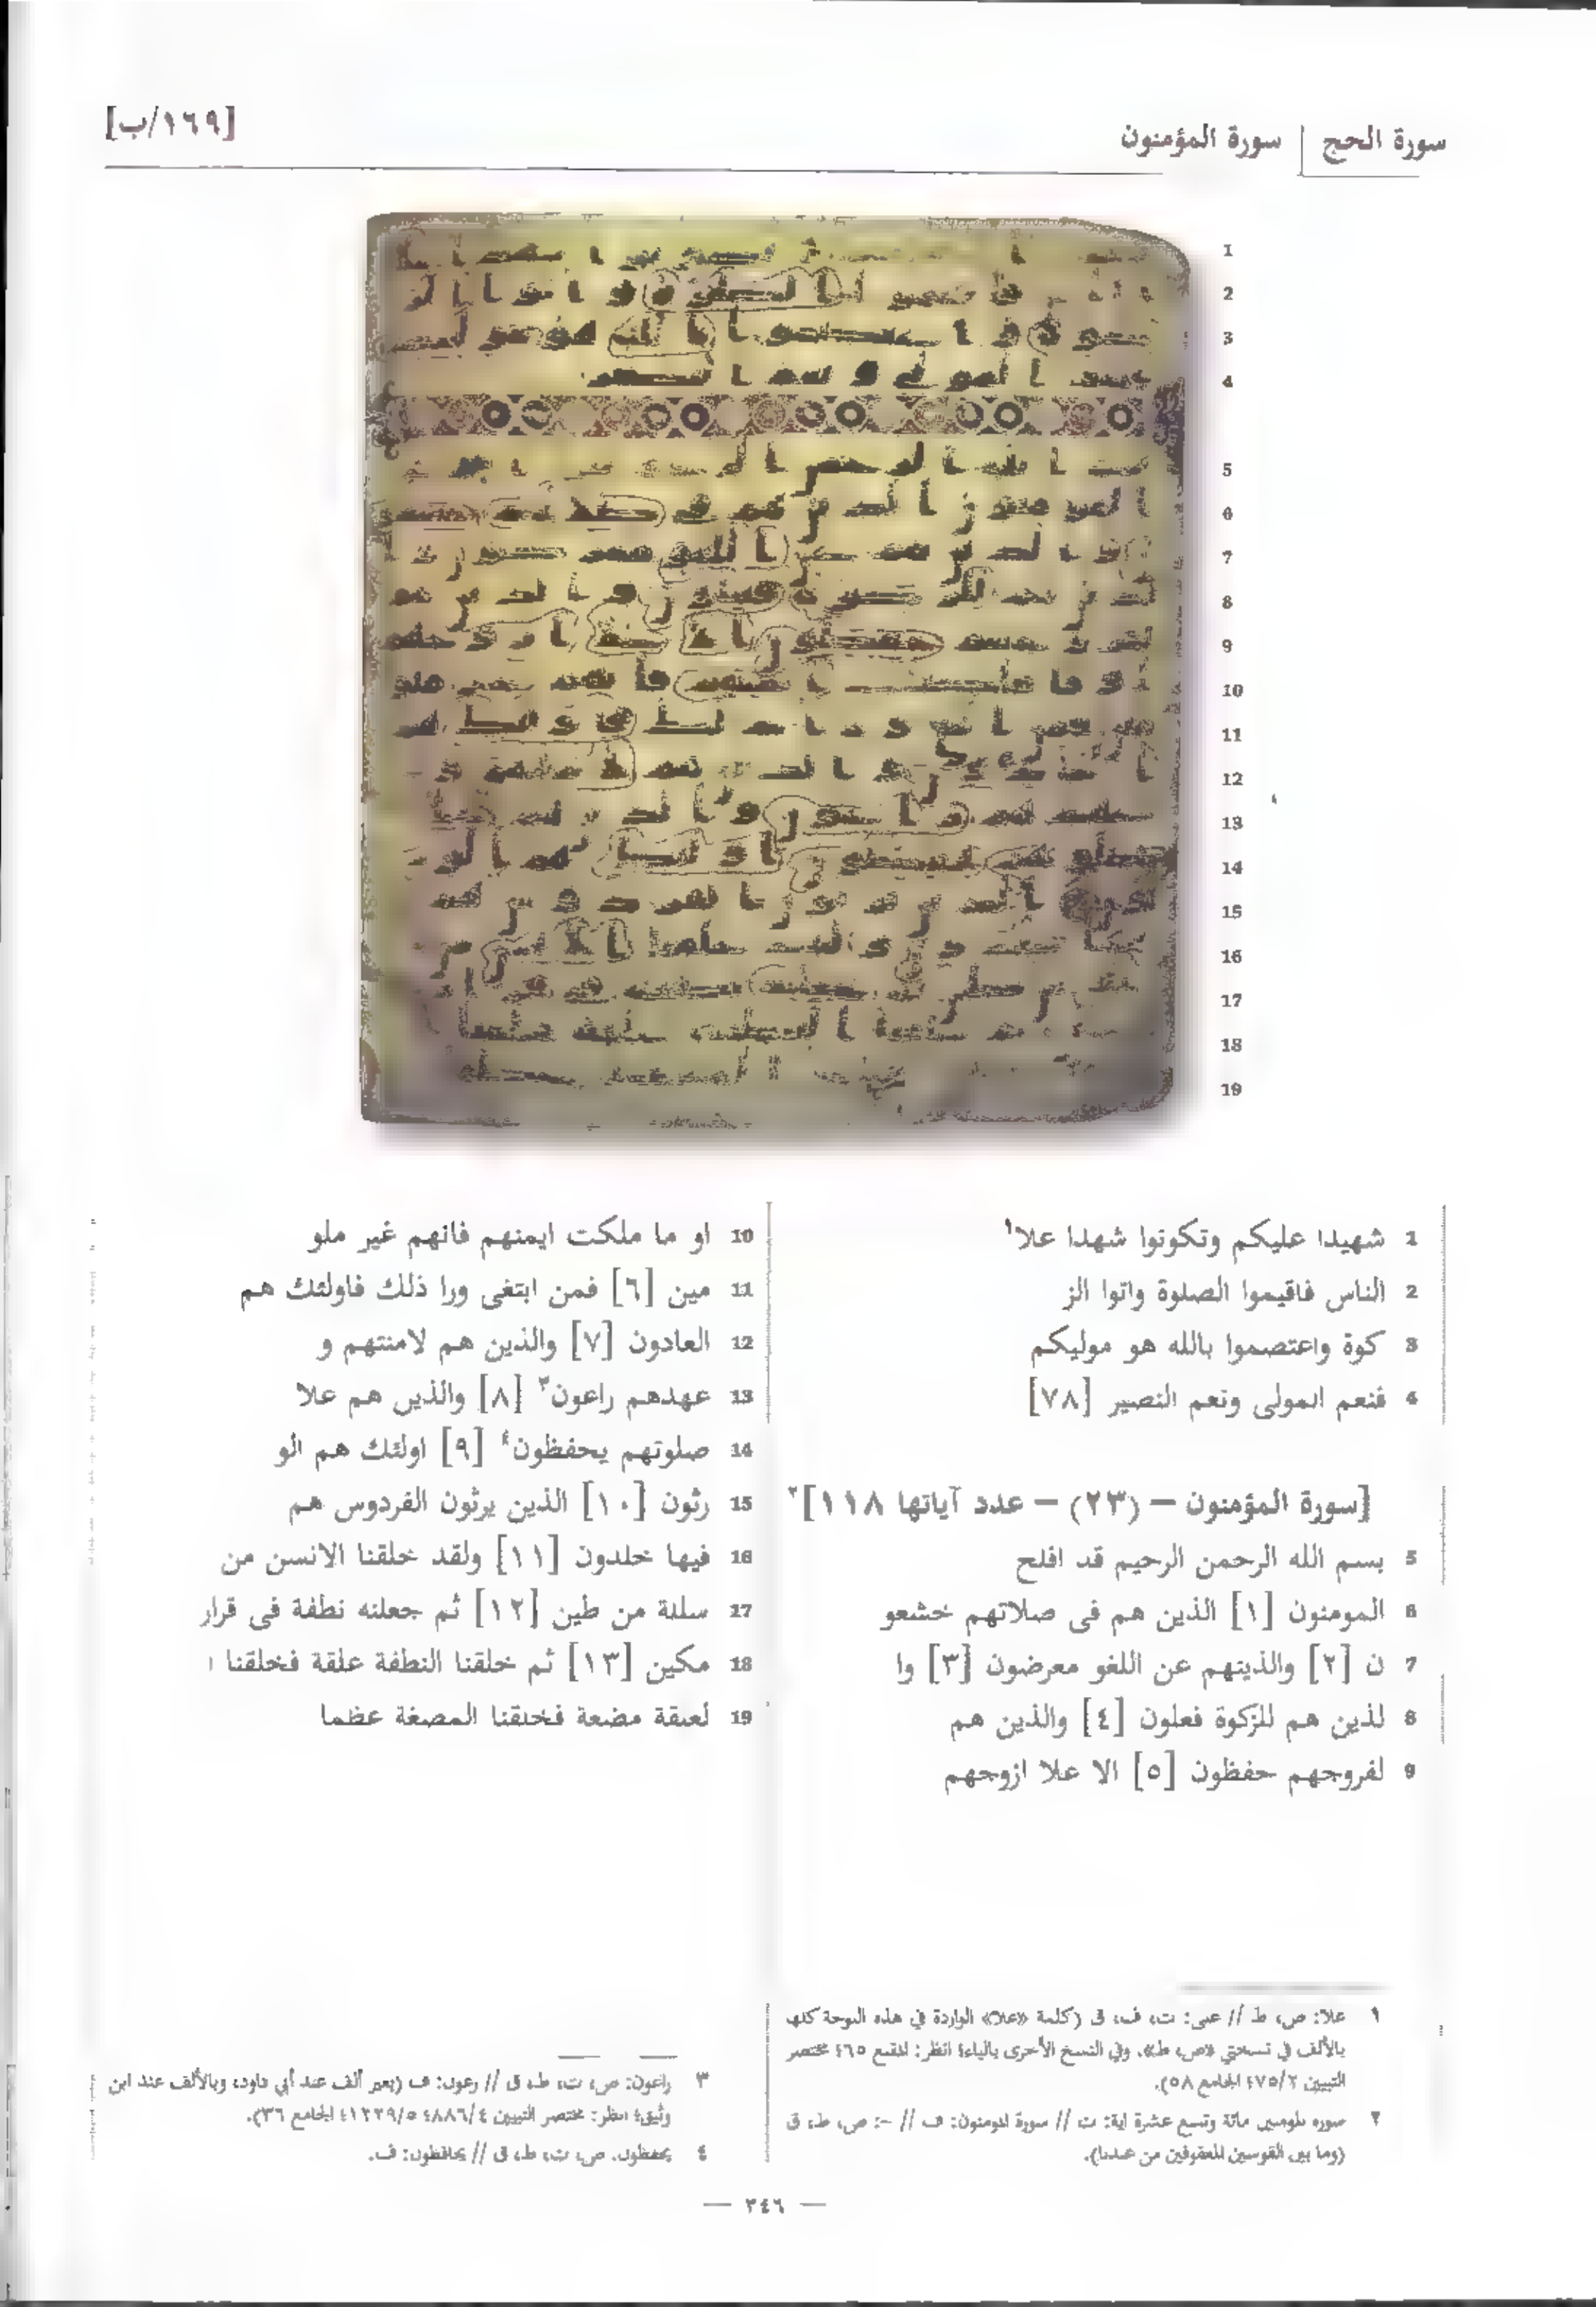 سورة الحج | سورة المؤمنون
[١٦٩/ب]
1 شهيدا عليكم وتكونوا شهدا علا١
2 الناس فاقيموا الصلوة واتوا الز
3 كوة واعتصموا بالله هو موليكم
4 فنعم المولى ونعم النصير [٧٨]
[سورة المؤمنون – (٢٣) – عدد آياتها ١١٨]٢
5 بسم الله الرحمن الرحيم قد افلح
6 المومنون [١] الذين هم فى صلاتهم خشعو
7 ن [٢] والذينهم عن اللغو معرضون [٣] وا
8 لذين هم للزكوة فعلون [٤] والذين هم
9 لفروجهم حفظون [٥] الا علا ازوجهم
10 او ما ملكت ايمنهم فانهم غير ملو
11 مين [٦] فمن ابتغى ورا ذلك فاولئك هم
12 العادون [٧] والذين هم لامنتهم و
13 عهدهم راعون٣ [٨] والذين هم علا
14 صلوتهم يحفظون٤ [٩] اولئك هم الو
15 رثون [١٠] الذين يرثون الفردوس هم
16 فيها خلدون [١١] ولقد خلقنا الانسن من
17 سللة من طين [١٢] ثم جعلنه نطفة فى قرار
18 مكين [١٣] ثم خلقنا النطفة علقة فخلقنا ا
19 لعلقة مضغة فخلقنا المضغة عظما
١ علا: ص، ط // على: ت، ف، ق (كلمة «علا» الواردة في هذه اللوحة كلها
بالألف في نسختي «ص، ط»، وفي النسخ الأخرى بالياء؛ انظر: المقنع ٤٦٥ مختصر
التبيين ٤٧٥/٢؛ الجامع ٥٨).
٢ سورة المومنين مائة وتسع عشرة اية: ت // سورة المومنون: ف // –: ص، ط، ق
(وما بين القوسين المعقوفين من عندنا).
٣ راعون: ص، ت، ط، ق // رعون: ف (بغير ألف عند أبي داود، وبالألف عند ابن
وثيق؛ انظر: مختصر التبيين ٨٨٦/٤؛ ١٢٢٩/٥؛ الجامع ٣٦).
٤ يحفظون: ص، ت، ط، ق // يحافظون: ف.
— ٣٤٦ —